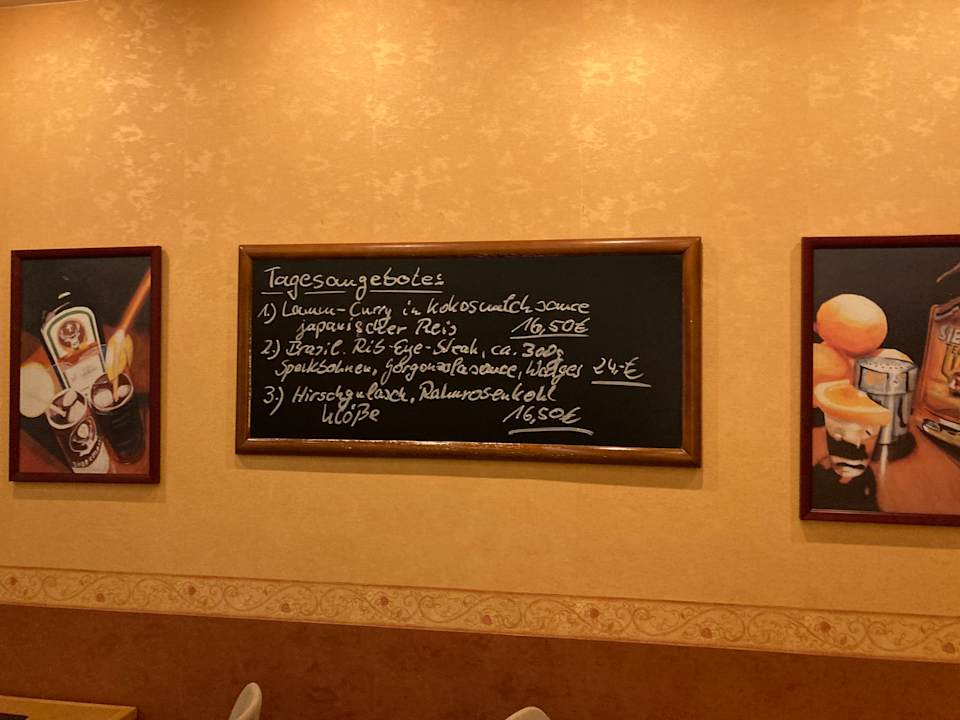 Tagesangebote:
1.) Lamm-Curry in Kokosmilchsauce
japanischer Reis 16,50€
2.) Brasil. Rib-Eye-Steak, ca. 300g
Speckbohnen, Gorgonzolasauce, Wedges 24,-€
3.) Hirschgulasch, Rahmrosenkohl
Klöße 16,50€